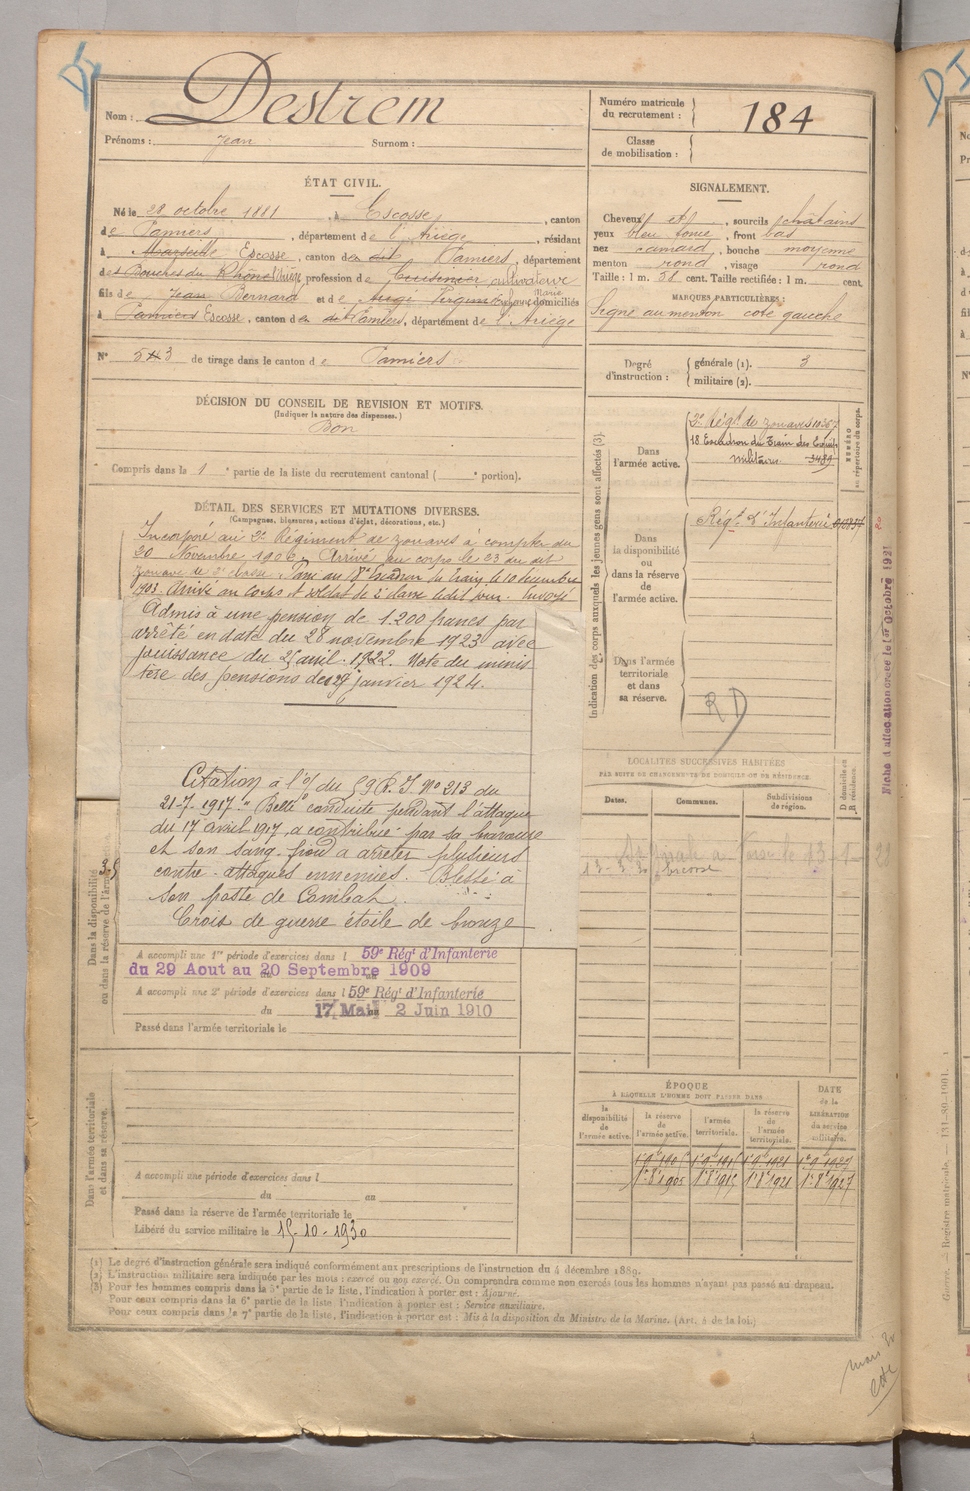 Nom : Destrem
Prénoms : Jean Surnom :
Numéro matricule du recrutement : 184
Classe de mobilisation :
ÉTAT CIVIL.
Né le 28 octobre 1881, à Escosse, canton
de Pamiers, département de l'Ariège, résidant
à Marseille Escosse, canton de Pamiers, département
des Bouches du Rhône l'Ariège, profession de Cuisinier cultivateur
fils de Jean Bernard et de Virginie Marie domiciliés
à Pamiers Escosse, canton de Pamiers, département de l'Ariège
N° 53 de tirage dans le canton de Pamiers
SIGNALEMENT.
Cheveux et, sourcils chatains
yeux bleu, front bas
nez camard, bouche moyenne
menton rond, visage rond
Taille : 1 m. 58 cent. Taille rectifiée : 1 m. cent.
MARQUES PARTICULIÈRES :
Signe au menton coté gauche
Degré d'instruction : générale (1). 3
militaire (2).
DÉCISION DU CONSEIL DE REVISION ET MOTIFS.
(Indiquer la nature des dispenses.)
Bon
Compris dans la 1e partie de la liste du recrutement cantonal ( e portion).
DÉTAIL DES SERVICES ET MUTATIONS DIVERSES.
(Campagnes, blessures, actions d'éclat, décorations, etc.)
Incorporé au 2e Régiment de zouaves à compter du
20 Novembre 190 . Arrivé au corps le 23 du dit
Zouave de 2e classe. Passé au 18e Escadron du Train le 10 décembre
1903. Arrivé au corps et soldat de 2e classe ledit jour. Envoyé
Admis à une pension de 1.200 francs par
arrêté en date du 28 novembre 1923 avec
jouissance du 25 avril 1922. Note du minis
tère des pensions du 29 janvier 1924.
Citation à l'o/ du 59 R.I. N° 213 du
21-7-1917 : "Belle conduite pendant l'attaque
du 17 avril 1917, a contribué par sa bravoure
et son sang-froid a arrêter plusieurs
contre-attaques ennemies. Blessé à
son poste de Combat.
Croix de guerre étoile de bronze
Dans la disponibilité ou dans la réserve de l'armée
A accompli une 1re période d'exercices dans l 59e Régt d'Infanterie
du 29 Aout au 20 Septembre 1909
A accompli une 2e période d'exercices dans l 59e Régt d'Infanterie
du 17 Mai au 2 Juin 1910
Passé dans l'armée territoriale le
Dans l'armée territoriale et dans sa réserve.
A accompli une période d'exercices dans l
du au
Passé dans la réserve de l'armée territoriale le
Libéré du service militaire le 15-10-1930
Indication des corps auxquels les jeunes gens sont affectés (3)
NUMÉRO au répertoire du corps.
Dans l'armée active.
2e Régt de Zouaves
18 Escadron du Train des Equip
Militaires 3489
Dans la disponibilité ou dans la réserve de l'armée active.
Régt d'Infanterie
Dans l'armée territoriale et dans sa réserve.
RD
Fiche d'affectation créée le 1er Octobre 1921
LOCALITÉS SUCCESSIVES HABITÉES
PAR SUITE DE CHANGEMENTS DE DOMICILE OU DE RÉSIDENCE.
Dates. Communes. Subdivisions de région. D domicile ou R résidence.
ÉPOQUE
À LAQUELLE L'HOMME DOIT PASSER DANS
la disponibilité de l'armée active. la réserve de l'armée active. l'armée territoriale. la réserve de l'armée territoriale. DATE de la LIBÉRATION du service militaire.
1er 8e 1905 1er 8e 1915 1er 8e 1921 1er 8e 1927
(1) Le degré d'instruction générale sera indiqué conformément aux prescriptions de l'instruction du 4 décembre 1889.
(2) L'instruction militaire sera indiquée par les mots : exercé ou non exercé. On comprendra comme non exercés tous les hommes n'ayant pas passé au drapeau.
(3) Pour les hommes compris dans la 5e partie de la liste, l'indication à porter est : Ajourné.
Pour ceux compris dans la 6e partie de la liste, l'indication à porter est : Service auxiliaire.
Pour ceux compris dans la 7e partie de la liste, l'indication à porter est : Mis à la disposition du Ministre de la Marine. (Art. 4 de la loi.)